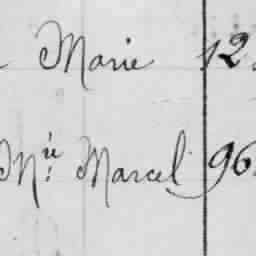 Marie 12
Mie Marcel 96